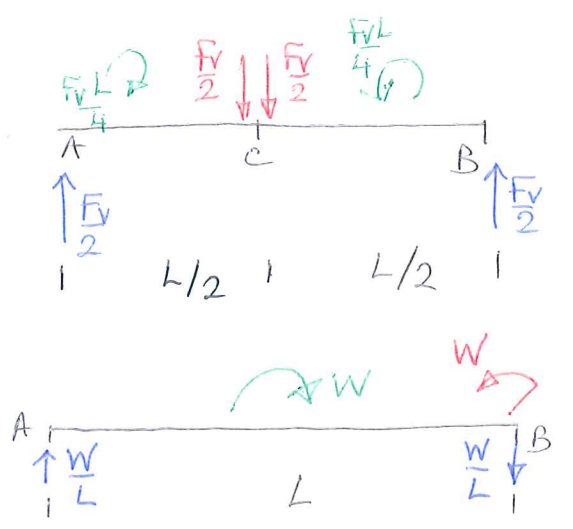 FvL/4 Fv/2 Fv/2 FvL/4
A C B
Fv/2 Fv/2
L/2 L/2
W W
A B
W/L L W/L